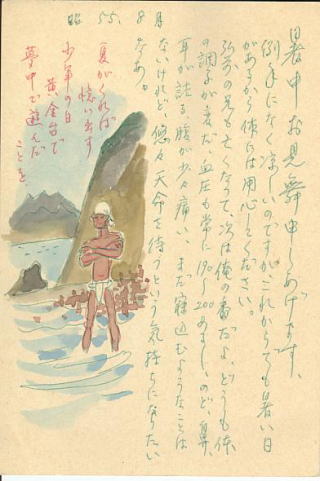 暑中お見舞申しあげます、
例年になく涼しいのですが、これからでも暑い日
があるから体には用心してください。
の兄も亡くなって、次は俺の番だよ、どうも体
の調子が変だ、血圧も常に190〜200あまし、のど、鼻、
耳が詰る、腹が少々痛い、まだ寝込むようなことは
ないけれど、悠々天命を待つという気持ちになりたい
なあ。
昭55.8月
夏がくれば
憶い出す
少年の日
黄金台で
夢中で遊んだ
ことを